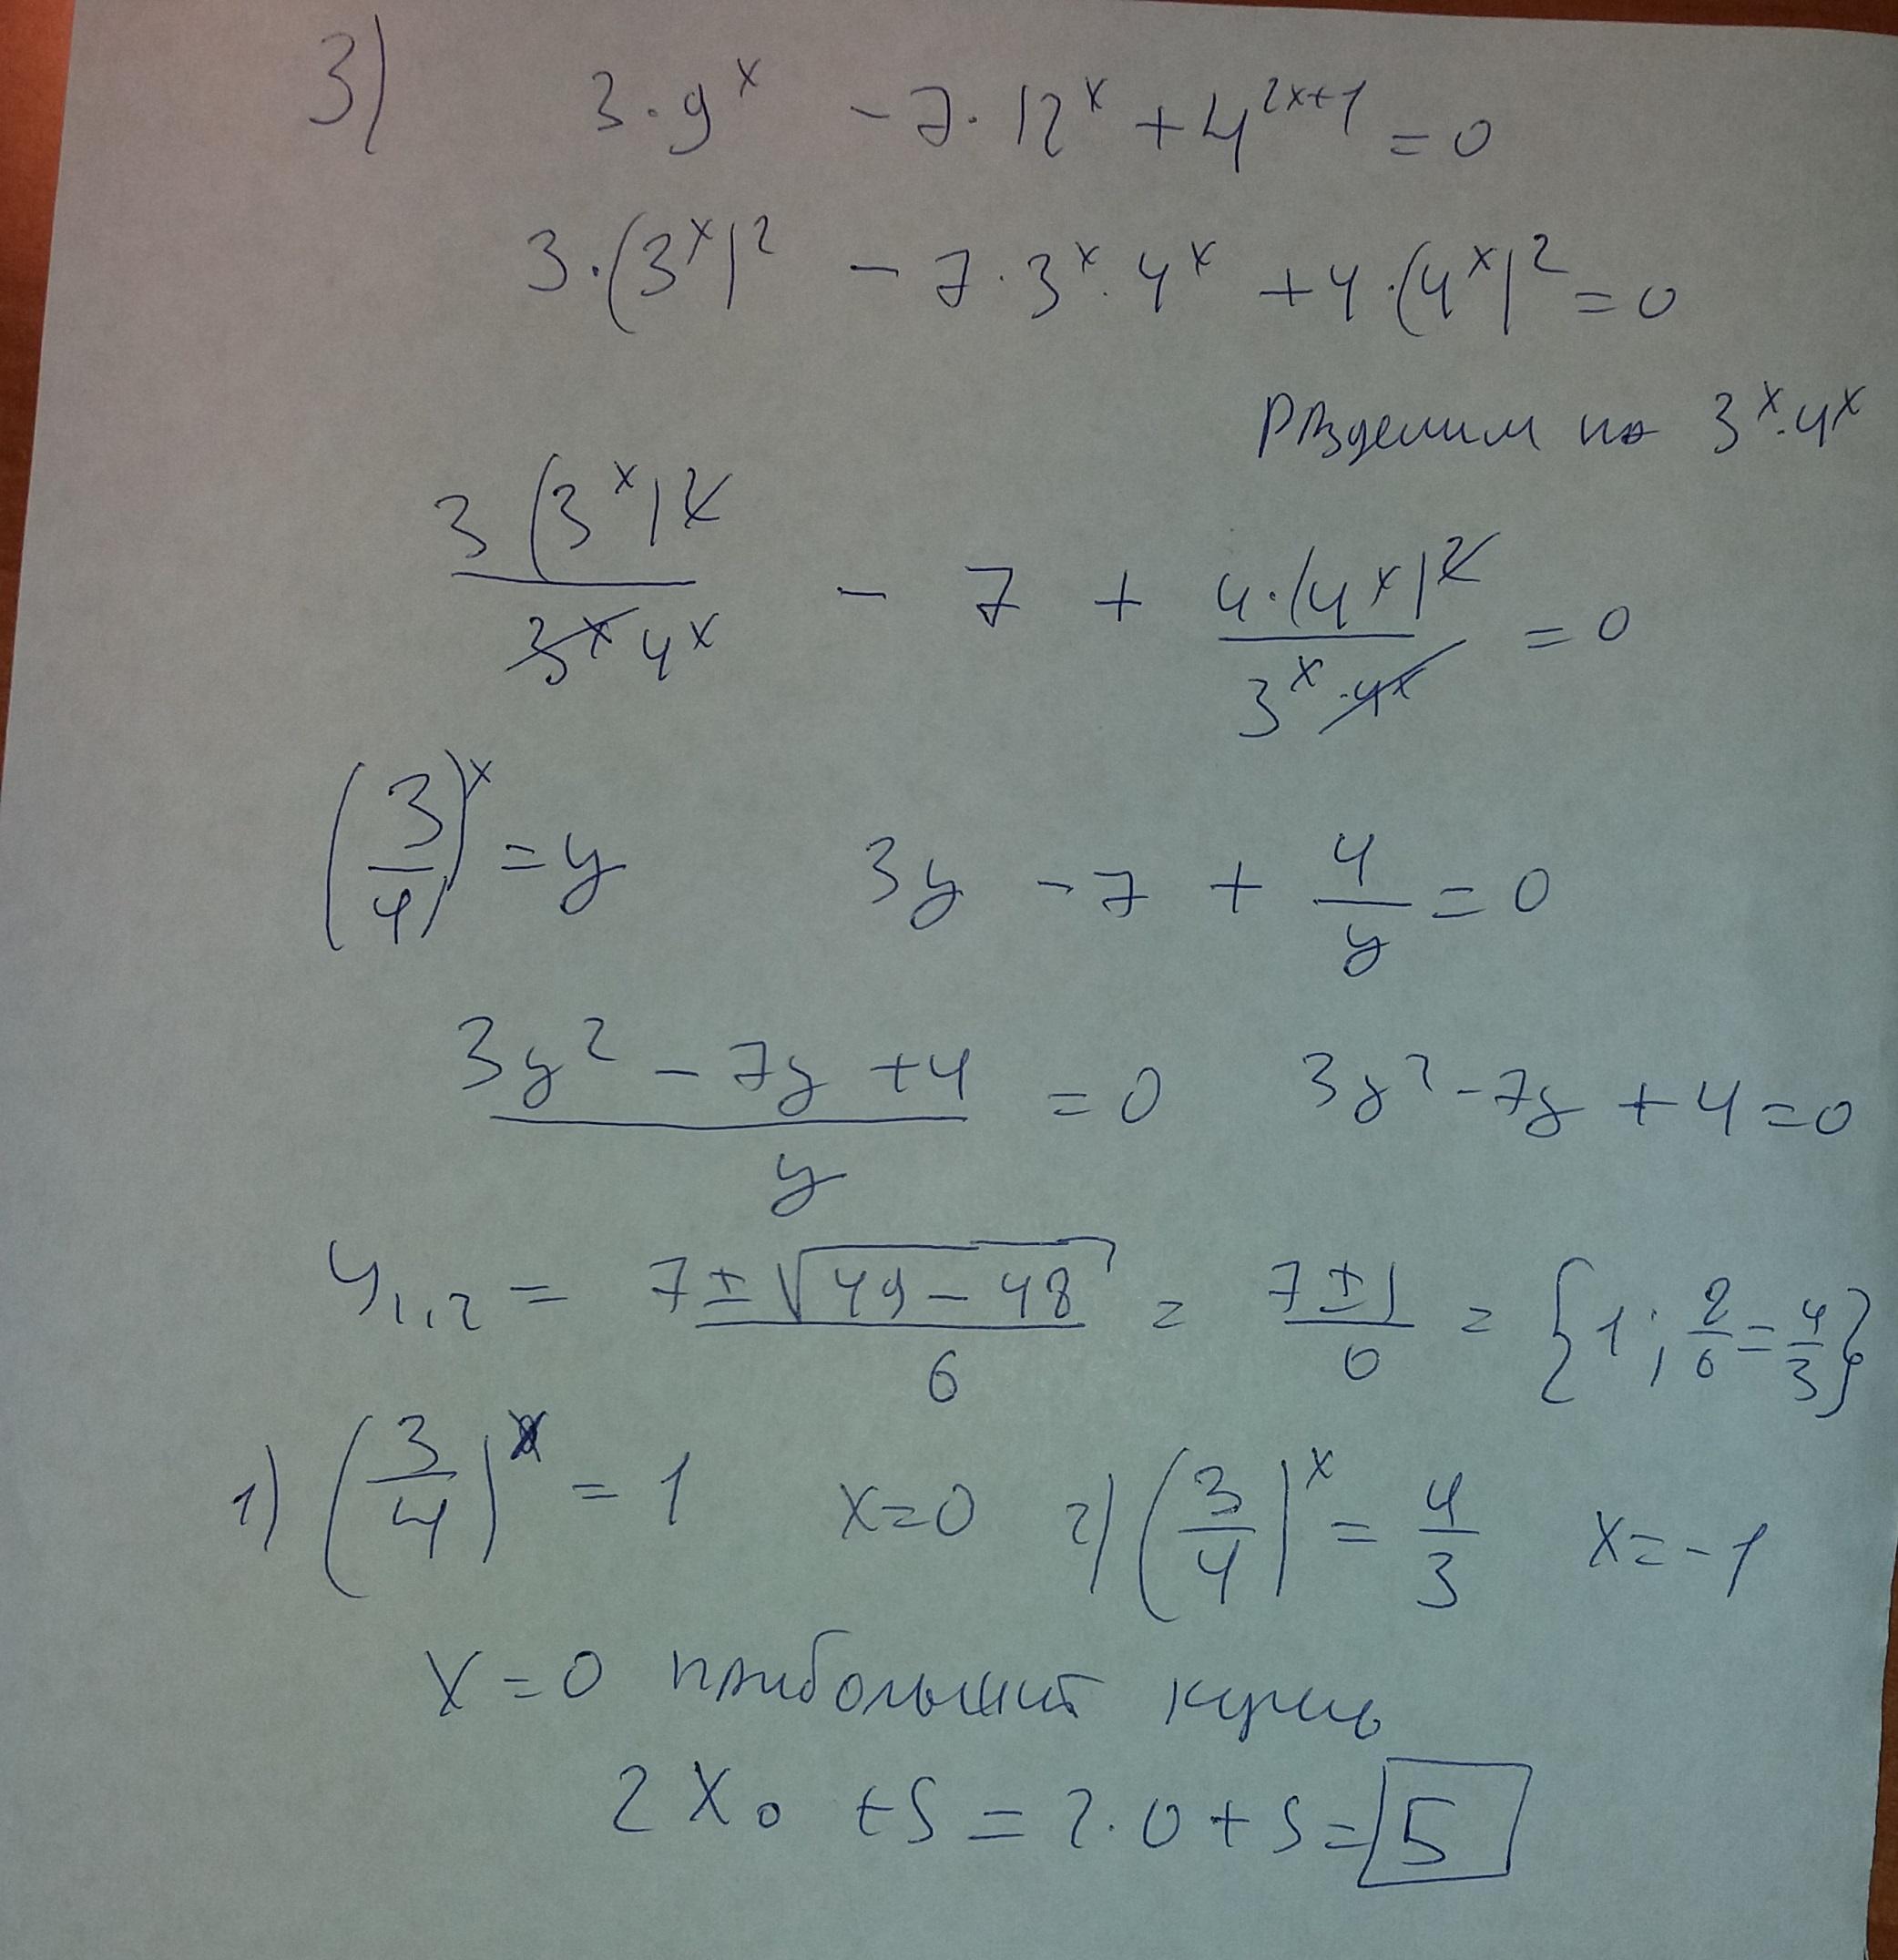 3) 3·9^x - 7·12^x + 4^(2x+1) = 0
3·(3^x)^2 - 7·3^x·4^x + 4·(4^x)^2 = 0
Разделим на 3^x·4^x
3(3^x)^2 / 3^x 4^x - 7 + 4·(4^x)^2 / 3^x·4^x = 0
(3/4)^x = y 3y - 7 + 4/y = 0
(3y^2 - 7y + 4) / y = 0 3y^2 - 7y + 4 = 0
y1,2 = (7 ± √(49 - 48)) / 6 = (7 ± 1) / 6 = {1; 8/6 = 4/3}
1) (3/4)^x = 1 x = 0 2) (3/4)^x = 4/3 x = -1
x = 0 наибольший корень
2x0 + 5 = 2·0 + 5 = 5